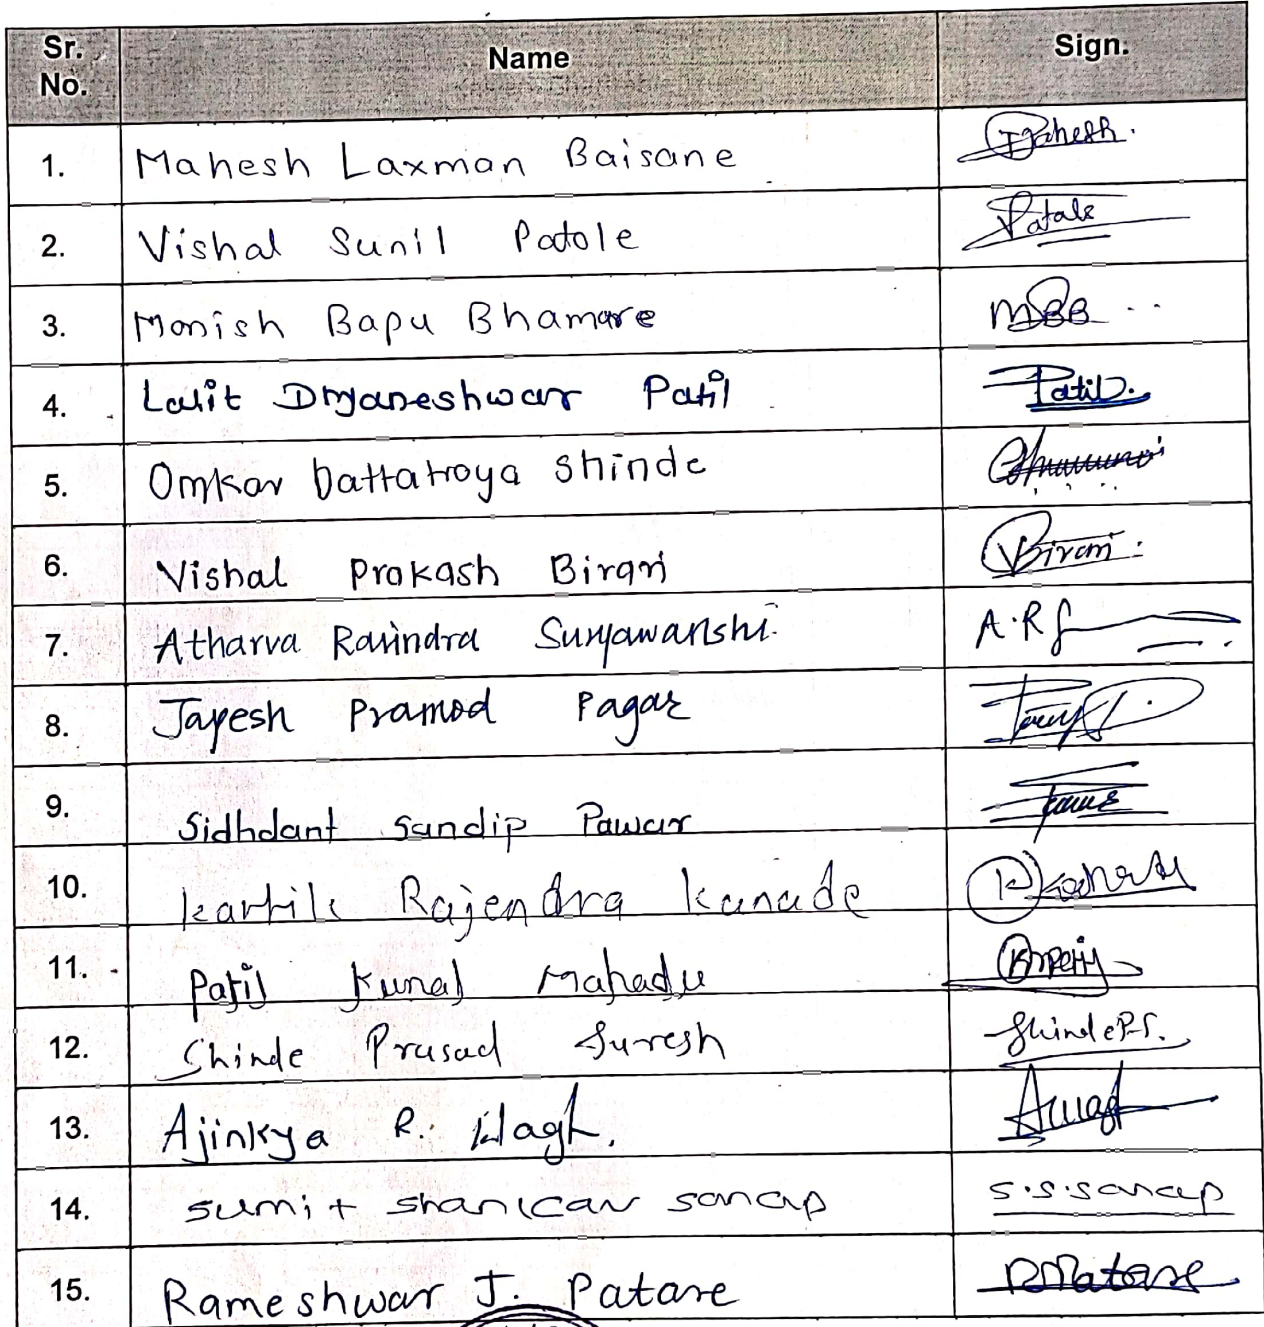 Sr. No. Name Sign.
1. Mahesh Laxman Baisane Mahesh.
2. Vishal Sunil Patole Patole
3. Monish Bapu Bhamare MBB
4. Lalit Dnyaneshwar Patil Patil.
5. Omkar Dattatroya Shinde
6. Vishal Prakash Birari Birari
7. Atharva Ravindra Suryawanshi A.R.S
8. Jayesh Pramod Pagar
9. Sidhdant Sandip Pawar
10. Kartik Rajendra Kanade
11. Patil Kunal Mahadu
12. Shinde Prasad Suresh Shinde P.S.
13. Ajinkya R. Wagh. AWagh
14. Sumit Shankar Sanap S.S.Sanap
15. Rameshwar J. Patare RPatare